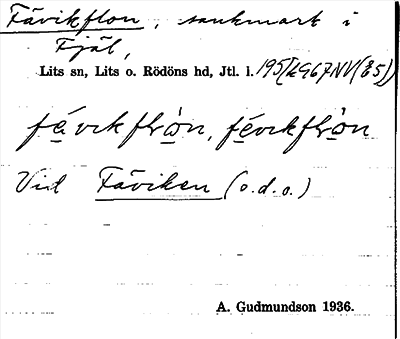 Fävikflon, sankmark i
Fjäl,
Lits sn, Lits o. Rödöns hd, Jtl. l.
fävikflòn, févikflòn
Vid Fäviken (o.d.o.)
A. Gudmundson 1936.